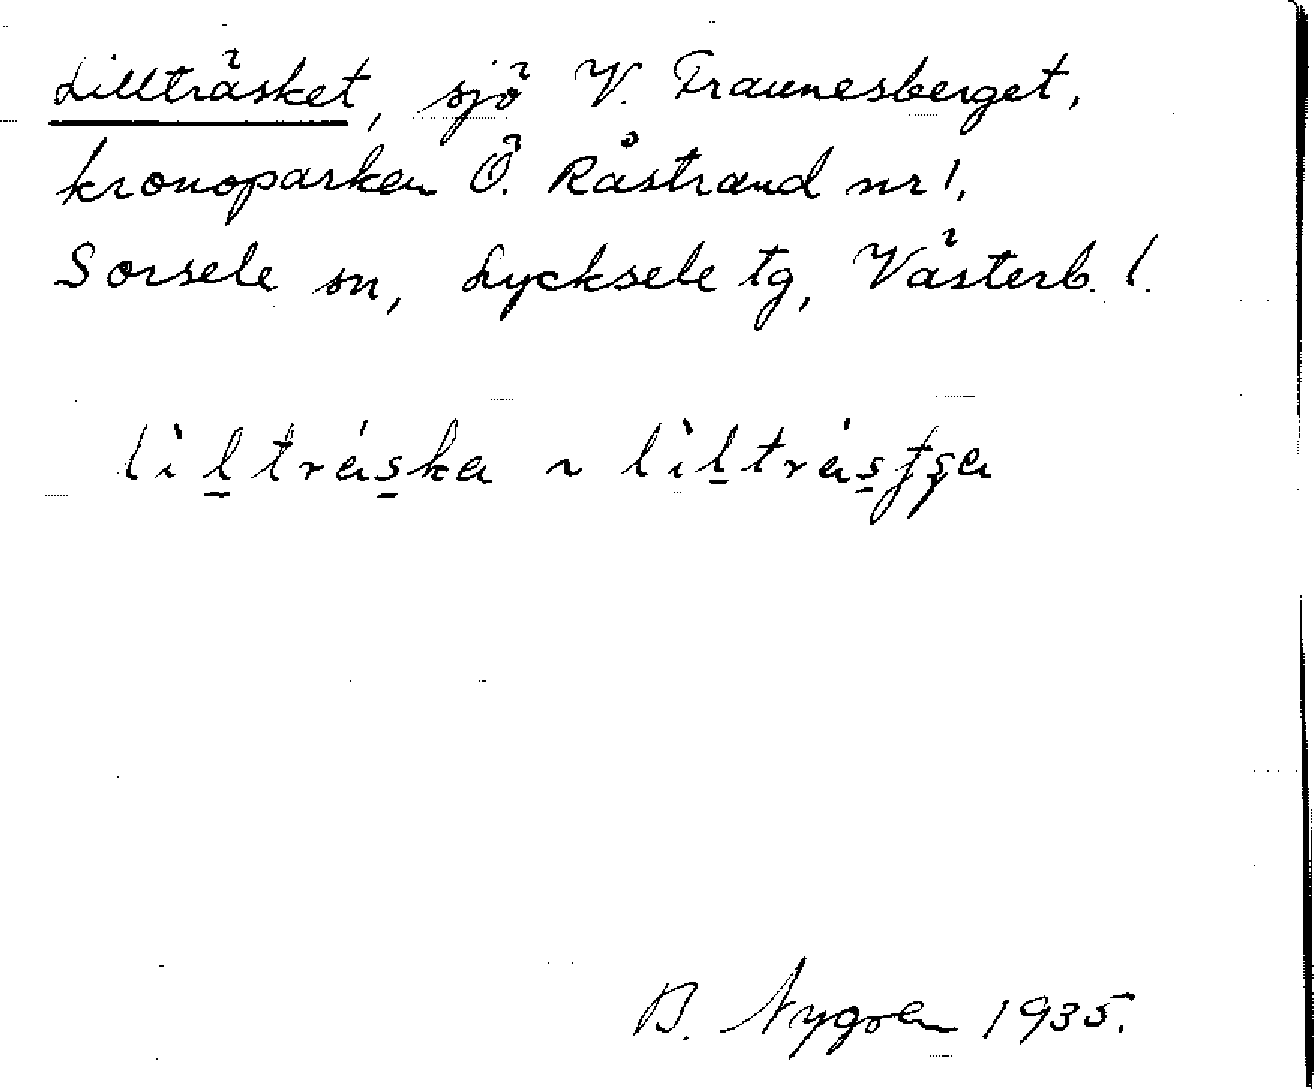 Lillträsket, sjö V. Fraunesberget,
kronoparken Ö. Råstrand nr 1,
Sorsele sn, Lycksele tg, Västerb. l.
lìl̲tráṣ̲ka ~ lìl̲tráṣ̲tʂa
B. Nygren 1935.